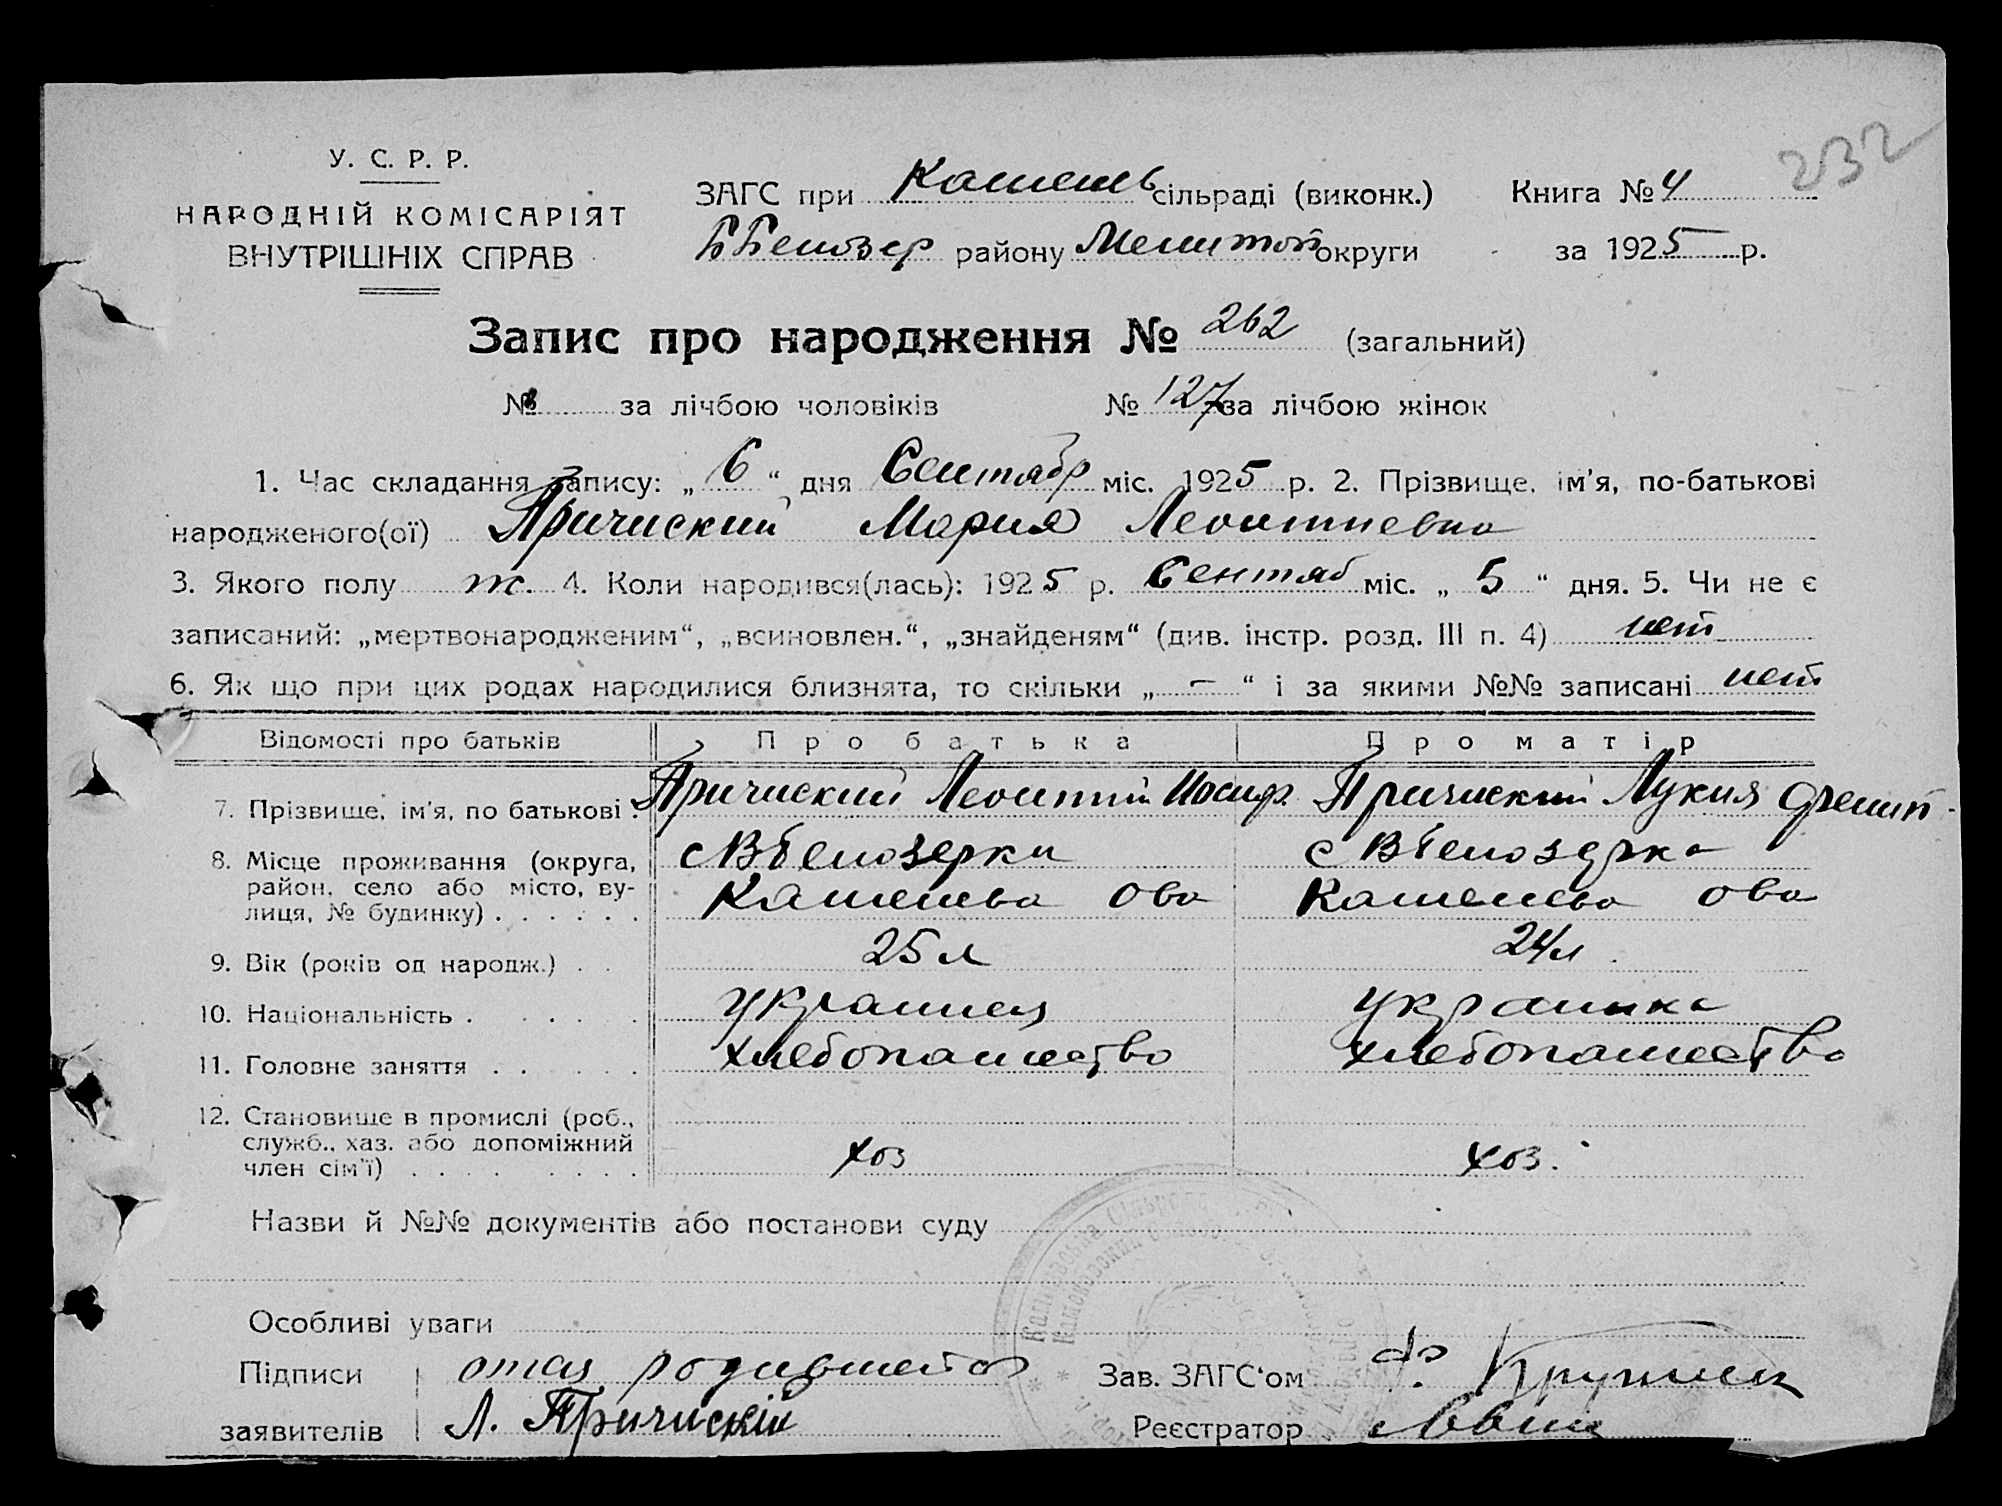 232
У. С. Р. Р.
НАРОДНІЙ КОМІСАРІЯТ
ВНУТРІШНІХ СПРАВ
ЗАГС при Камень сільраді (виконк.)
ББелозер району Мелитоп округи
Книга № 4
за 1925 р.
Запис про народження № 262 (загальний)
№ за лічбою чоловіків № 127 за лічбою жінок
1. Час складання запису: „ 6 “ дня Сентябр міс. 1925 р. 2. Прізвище, ім’я, по-батькові
народженого(ої) Причиский Мария Леонтиевна
3. Якого полу ж. 4. Коли народився(лась): 1925 р. Сентяб міс. „ 5 “ дня. 5. Чи не є
записаний: „мертвонародженим“, „всиновлен.“, „знайденям“ (див. інстр. розд. III п. 4) нет
6. Як що при цих родах народилися близнята, то скільки „ – “ і за якими №№ записані нет
Відомості про батьків Про батька Про матір
7. Прізвище, ім’я, по батькові . Причиский Леонтий Иосиф. Причиский Лукия
8. Місце проживання (округа, район, село або місто, вулиця, № будинку) . . . . . .
с ВБелозерки с ВБелозерка
9. Вік (років од народж.) . . 25 л 24 л.
10. Національність . . . . . украинец украинка
11. Головне заняття . . . . . хлебопашество хлебопашество
12. Становище в промислі (роб., служб., хаз. або допоміжний член сім’ї) . . . . . . .
хоз хоз.
Назви й №№ документів або постанови суду
Особливі уваги
Підписи отец родившегося Зав. ЗАГС‘ом
заявителів Л. Причиский Реєстратор